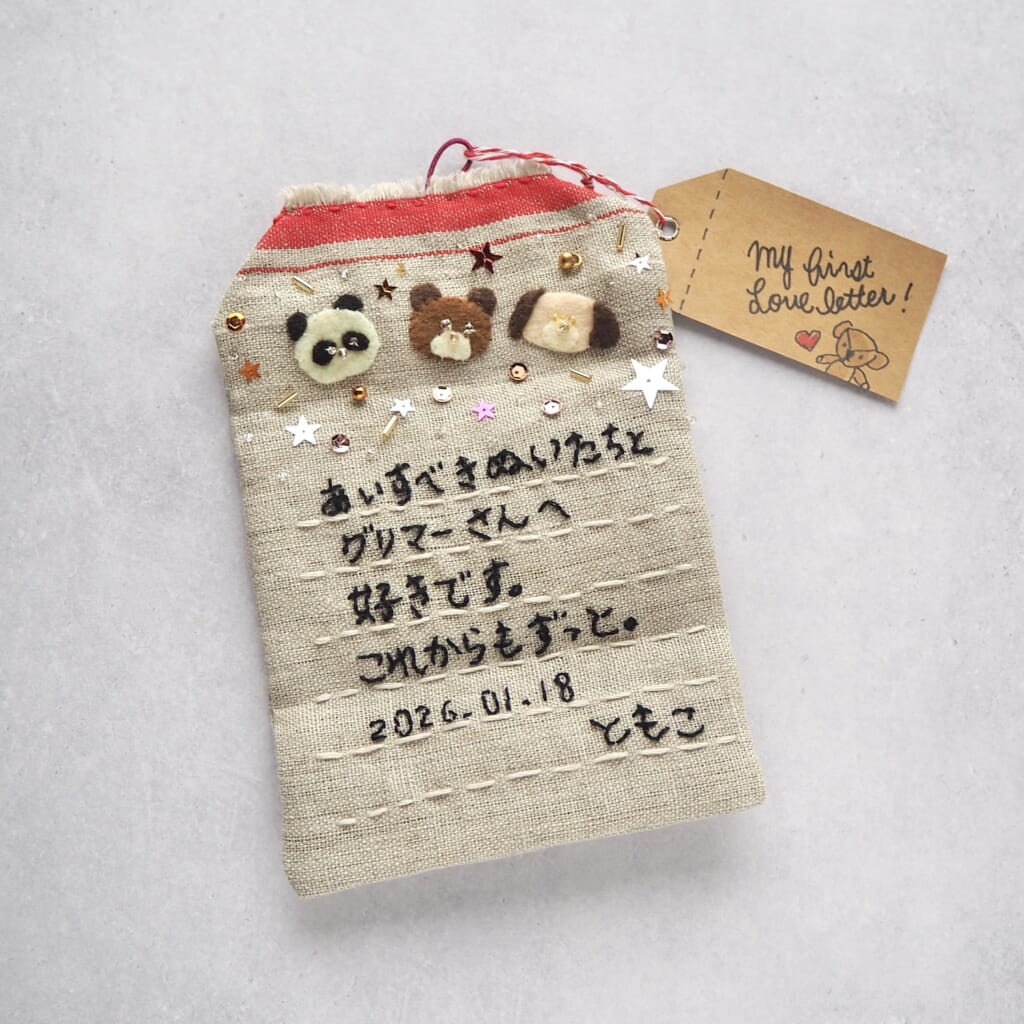 My first
Love letter!
あいすべきぬいたちと
グリマーさんへ
好きです。
これからもずっと。
2026.01.18
ともこ